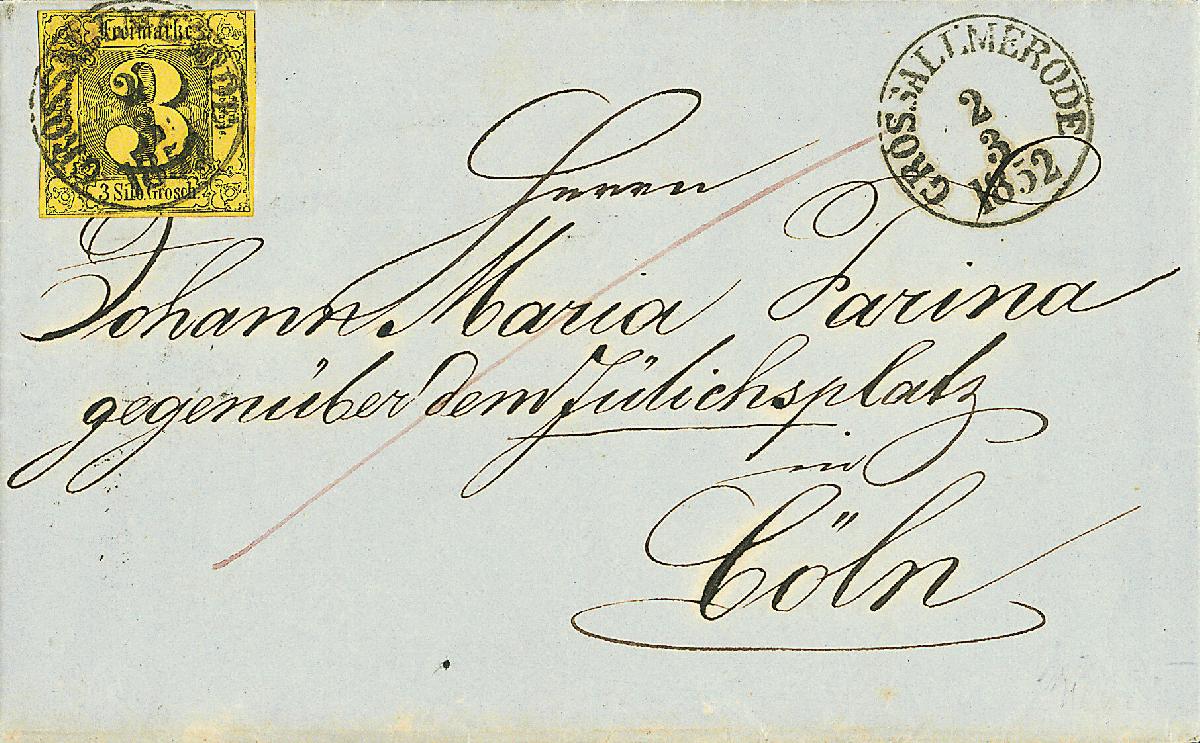 Freimarke
3
3 Silb. Grosch.
GROSSALLMERODE
2
3
1852
Herrn
Johann Maria Farina
gegenüber dem Jülichsplatz
in
Cöln